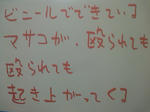 ビニールでできている
マサコが、殴られても
殴られても
起き上がってくる